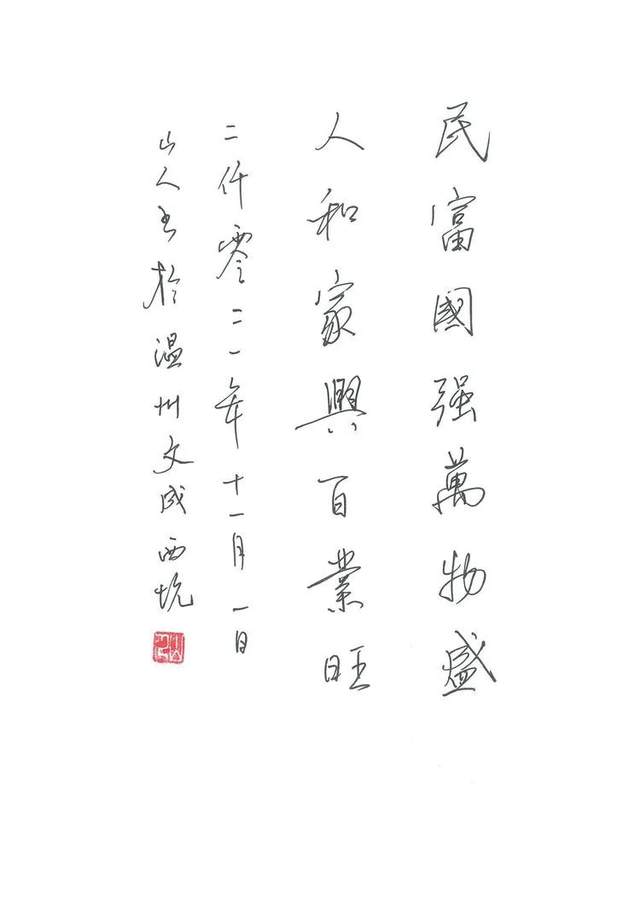 民富國强萬物盛
人和家興百業旺
二仟零二一年十一月一日
山人书於温州文成西坑